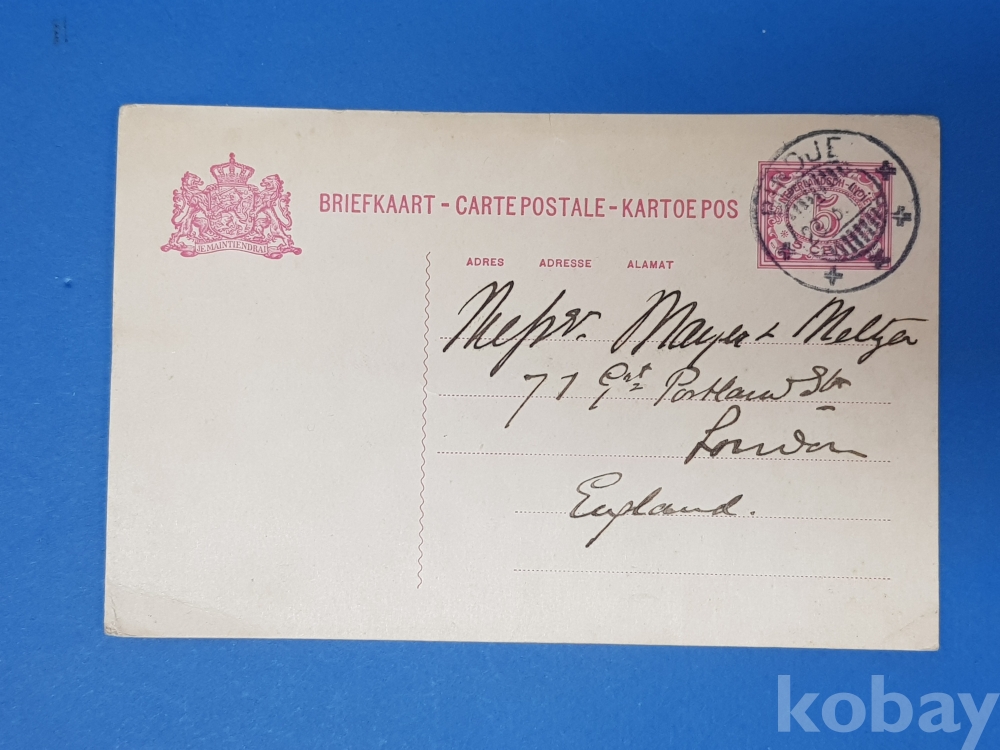 JE MAINTIENDRAI
BRIEFKAART - CARTE POSTALE - KARTOE POS
ADRES ADRESSE ALAMAT
5
CENT
Messrs. Mayer & Meltzer
71 Gt. Portland St.
London
England.
kobay